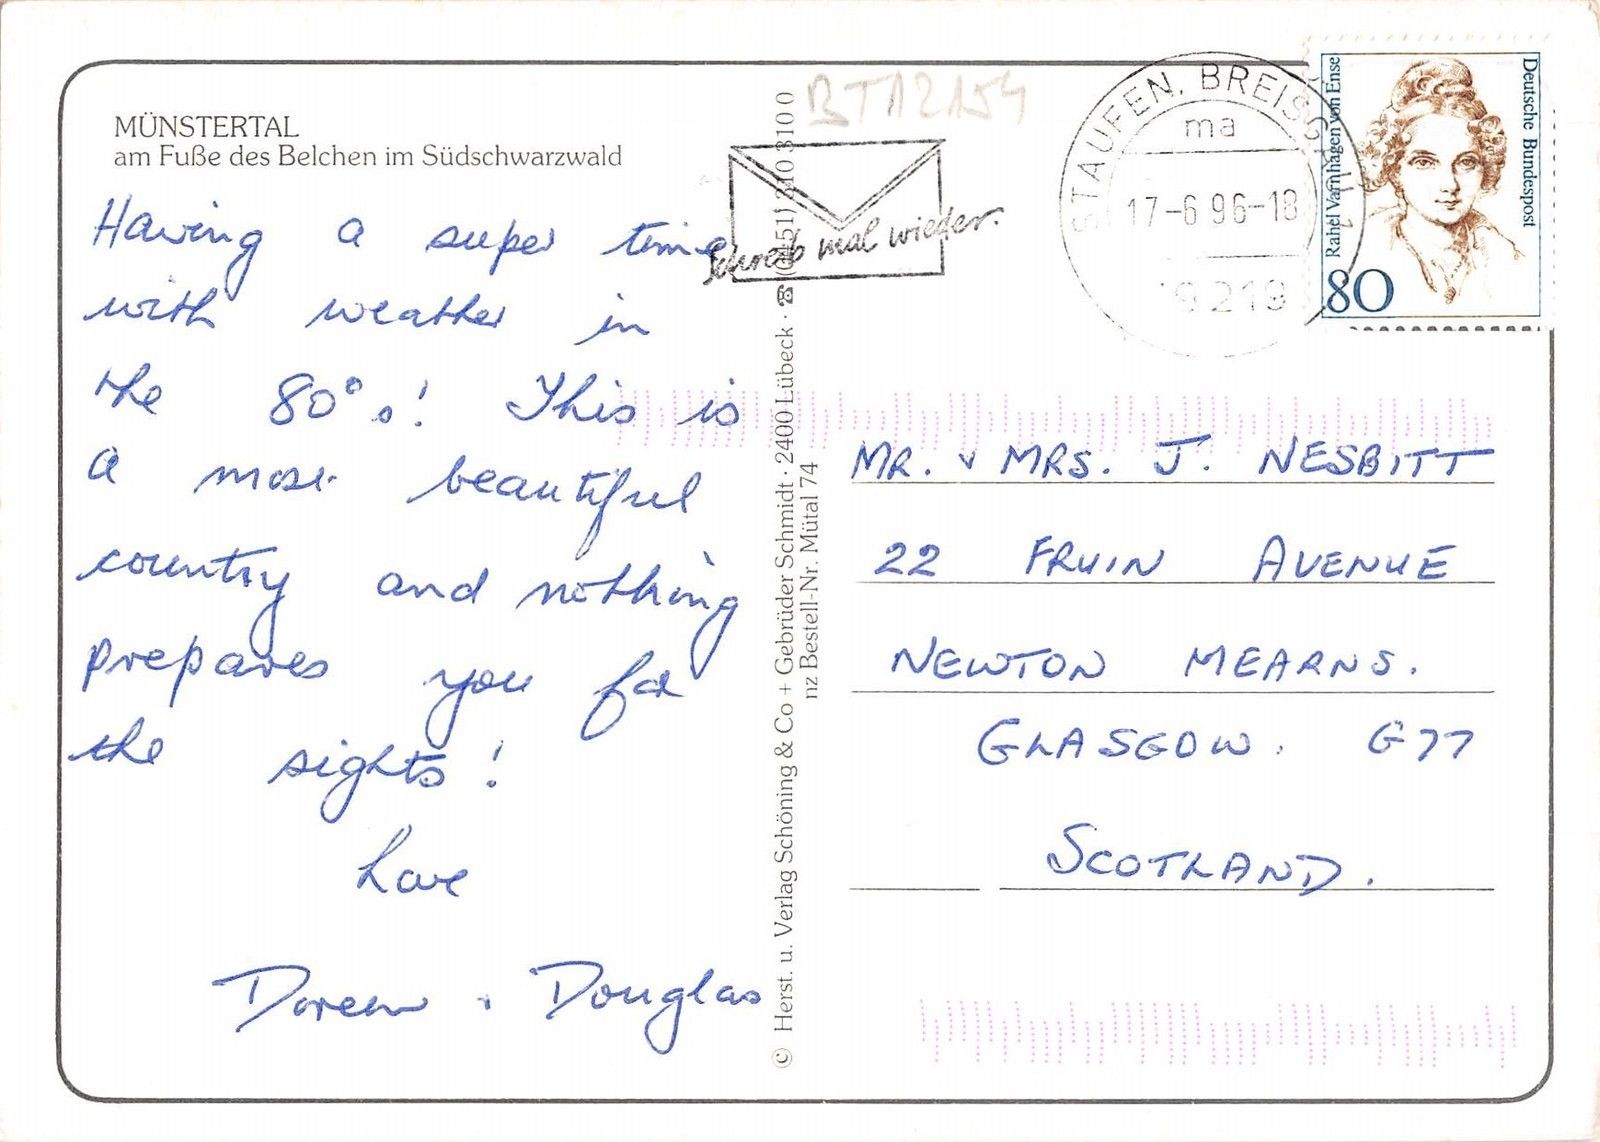 MÜNSTERTAL
am Fuße des Belchen im Südschwarzwald
Having a super time
with weather in
the 80°s! This is
a most beautiful
country and nothing
prepares you for
the sights!
Love
Doreen & Douglas
© Herst. u. Verlag Schöning & Co + Gebrüder Schmidt · 2400 Lübeck · ☎ (0451) 210 310 0
nz Bestell-Nr. Mütal 74
BT12154
Schreib mal wieder.
STAUFEN, BREISGAU 1
ma
17-6 96-18
79219
Rahel Varnhagen von Ense
Deutsche Bundespost
80
MR. & MRS. J. NESBITT
22 FRUIN AVENUE
NEWTON MEARNS.
GLASGOW. G77
SCOTLAND.